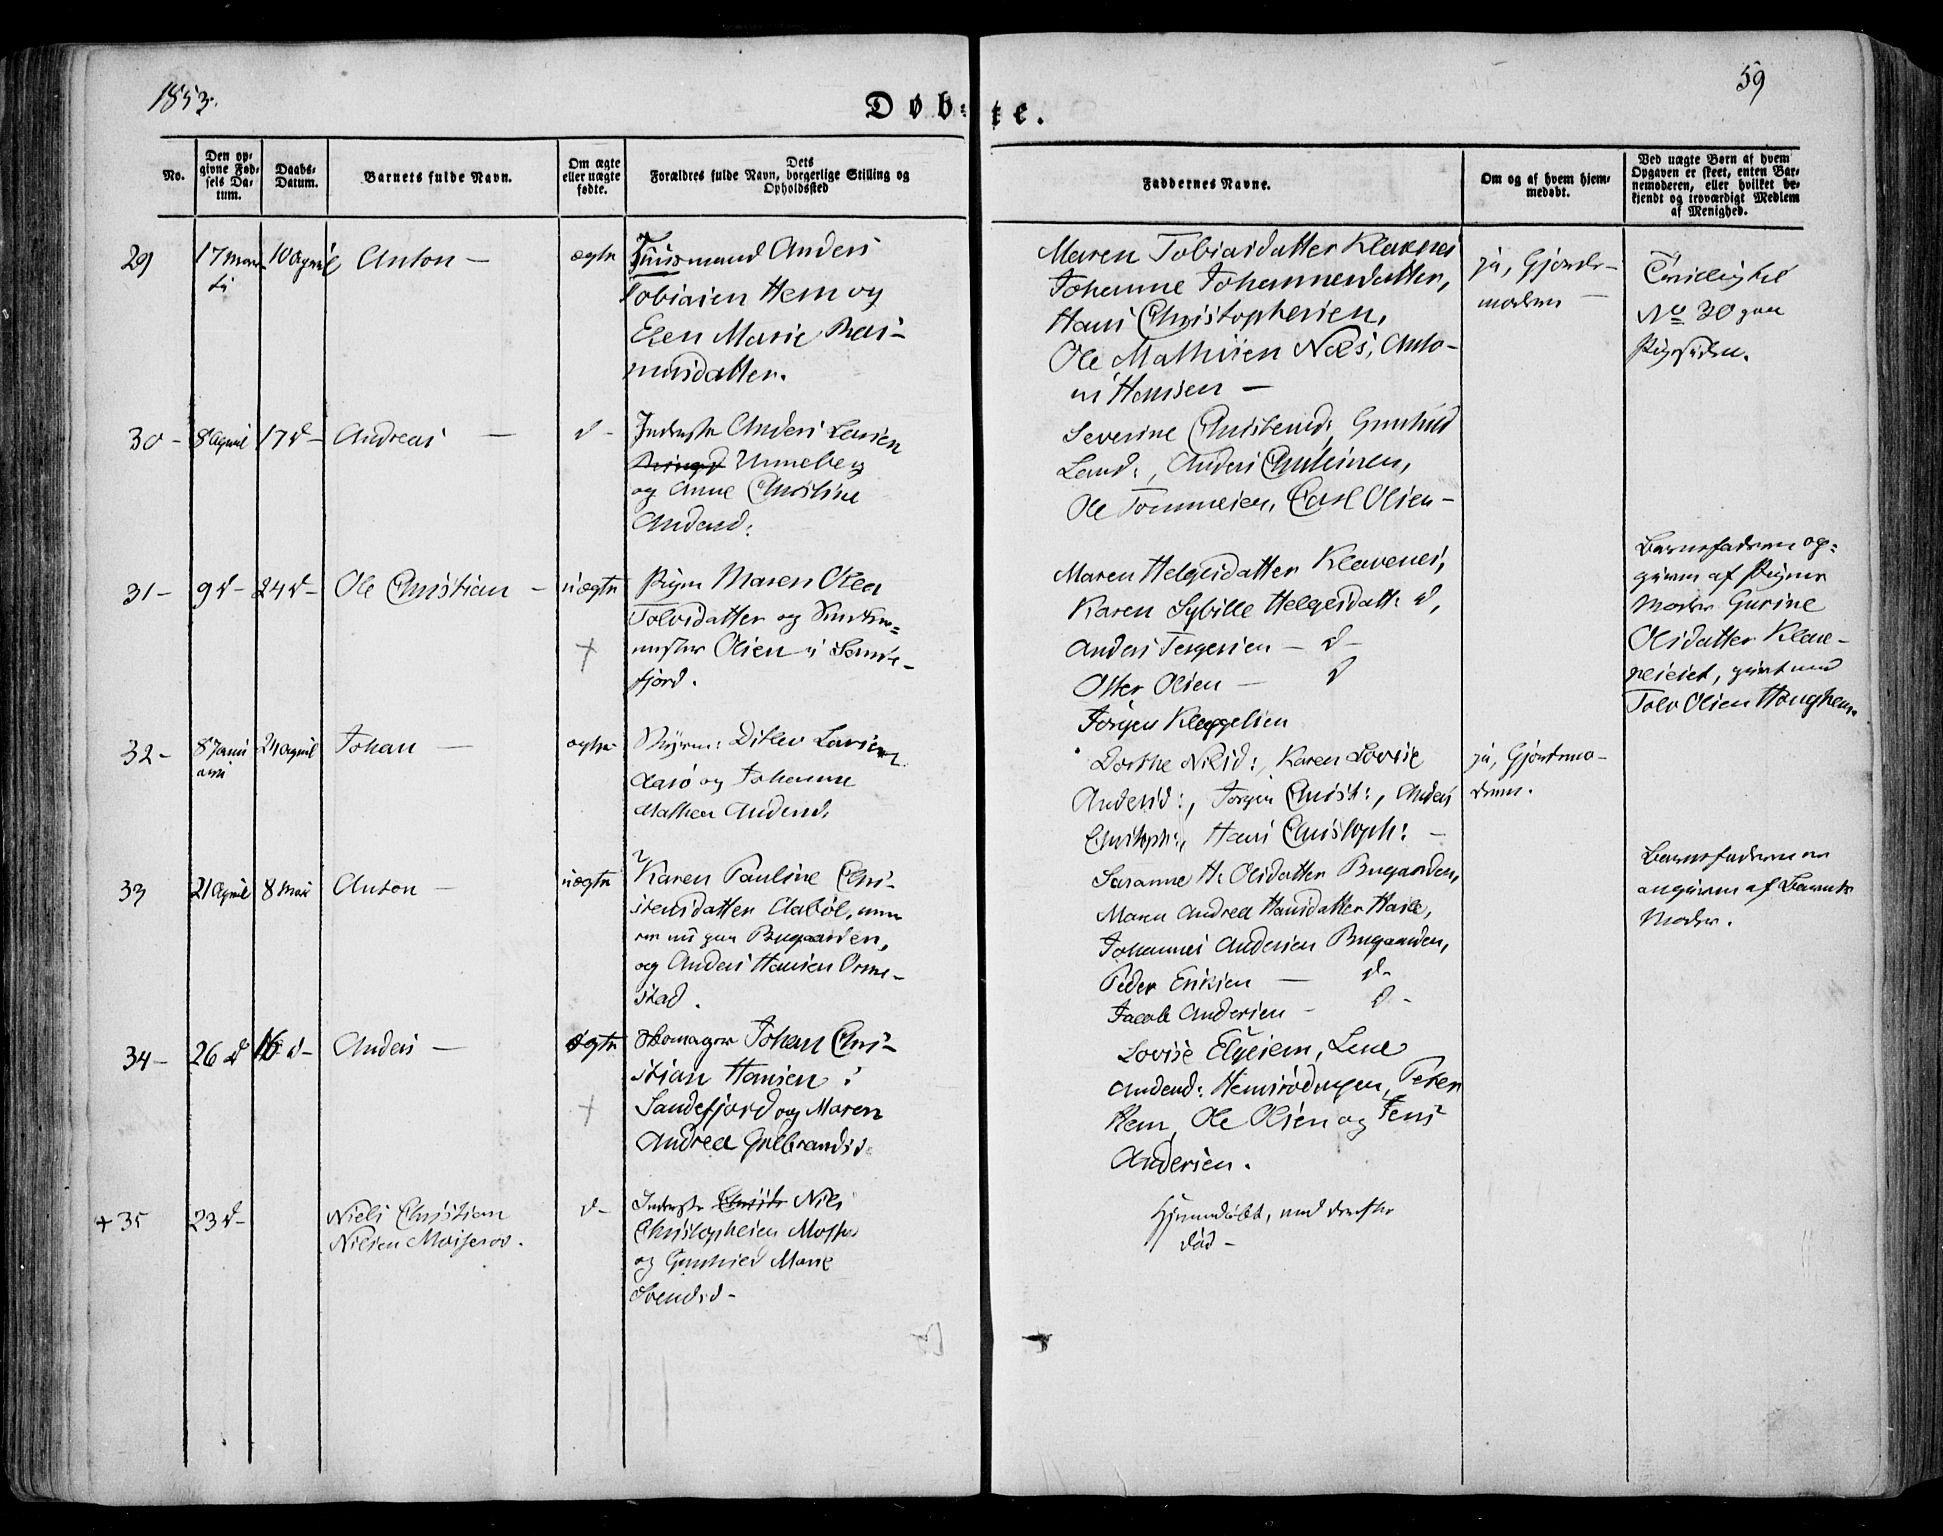 1853.
59
Døb-
te.
No.
Den op-
givne Fød-
sels Da-
tum.
Daabs-
Datum.
Barnets fulde Navn.
Om ægte
eller uægte
fødte.
Dets
Forældres fulde Navn, borgerlige Stilling og
Opholdssted
Faddernes Navne.
Om og af hvem hjem-
medøbt.
Ved uægte Børn af hvem
Opgaven er skeet, enten Bar-
nemoderen, eller hvilket be-
kjendt og troværdigt Medlem
af Menighed.
29
17 Mar-
ti
10 April
Anton —
ægte
Huusmand Anders
Tobiasen Hem og
Elen Marie Ras-
musdatter.
Maren Tobiasdatter Klavenes
Johanne Johannesdatter,
Hans Christophersen,
Ole Mathisen Næs, Anto-
ni Hansen —
ja, Gjorde-
moderen —
Tvilling til
No 30 paa
Pigesiden.
30 -
8 April
17 d -
Andreas —
d -
Inderste Anders Larsen
Unneberg
og Anne Christine
Andersd:
Severine Christensd: Gunhild
Larsd:, Anders Christensen,
Ole Tommesen, Carl Olsen -
31 -
9 d -
24 d -
Ole Christian —
uægte
+
Pigen Maren Olea
Tolvsdatter og
Olsen i Sande-
fjord.
Maren Helgesdatter Klavenes,
Karen Sybille Helgesdatt: d,
Anders Tergersen — d -
Otter Olsen — d
Jørgen Kleppelsen
Barnefaderen op-
given af Pigens
Moder Gurine
Olsdatter Klave-
neseiet, gift med
Tolv Olsen Haughem.
32 -
8 Janu
arii
24 April
Johan —
ægte
Styrm: Ditlev Larsen
Aasø og Johanne
Mathea Andersd.
Dorthe Nilsd:, Karen Lovise
Andersd:, Jørgen Christ:, Anders
Christoph:, Hans Christoph: —
ja, Gjordemo-
deren.
33
21 April
8 Mai
Anton —
uægte
Karen Pauline Chri-
stensdatter Aabøl, men
er nu paa Bugaarden,
og Anders Hansen Orme-
stad.
Susanne H. Olsdatter Bugaarden,
Maren Andrea Hansdatter Hasle,
Johannes Andersen Bugaarden,
Peder Eriksen — d -
Jacob Andersen - d -
Barnefaderen er
angiven af Barnets
Moder.
34 -
26 d
16 d -
Anders —
ægte
+
Skomager Johan Chri-
stian Hansen i
Sandefjord og Maren
Andrea Gulbrandsd:
Lovise Elgesem, Line
Andersd: Hemsrødungen, Peter
Hem, Ole Olsen og Jens
Andersen.
+ 35
23 d -
Niels Christian
Nilsen Moiserød.
d -
Inderste Christ: Nils
Christophersen Mosser
og Gunhild Marie
Svendsd -
Hjemmedøbt, med derefter
død -